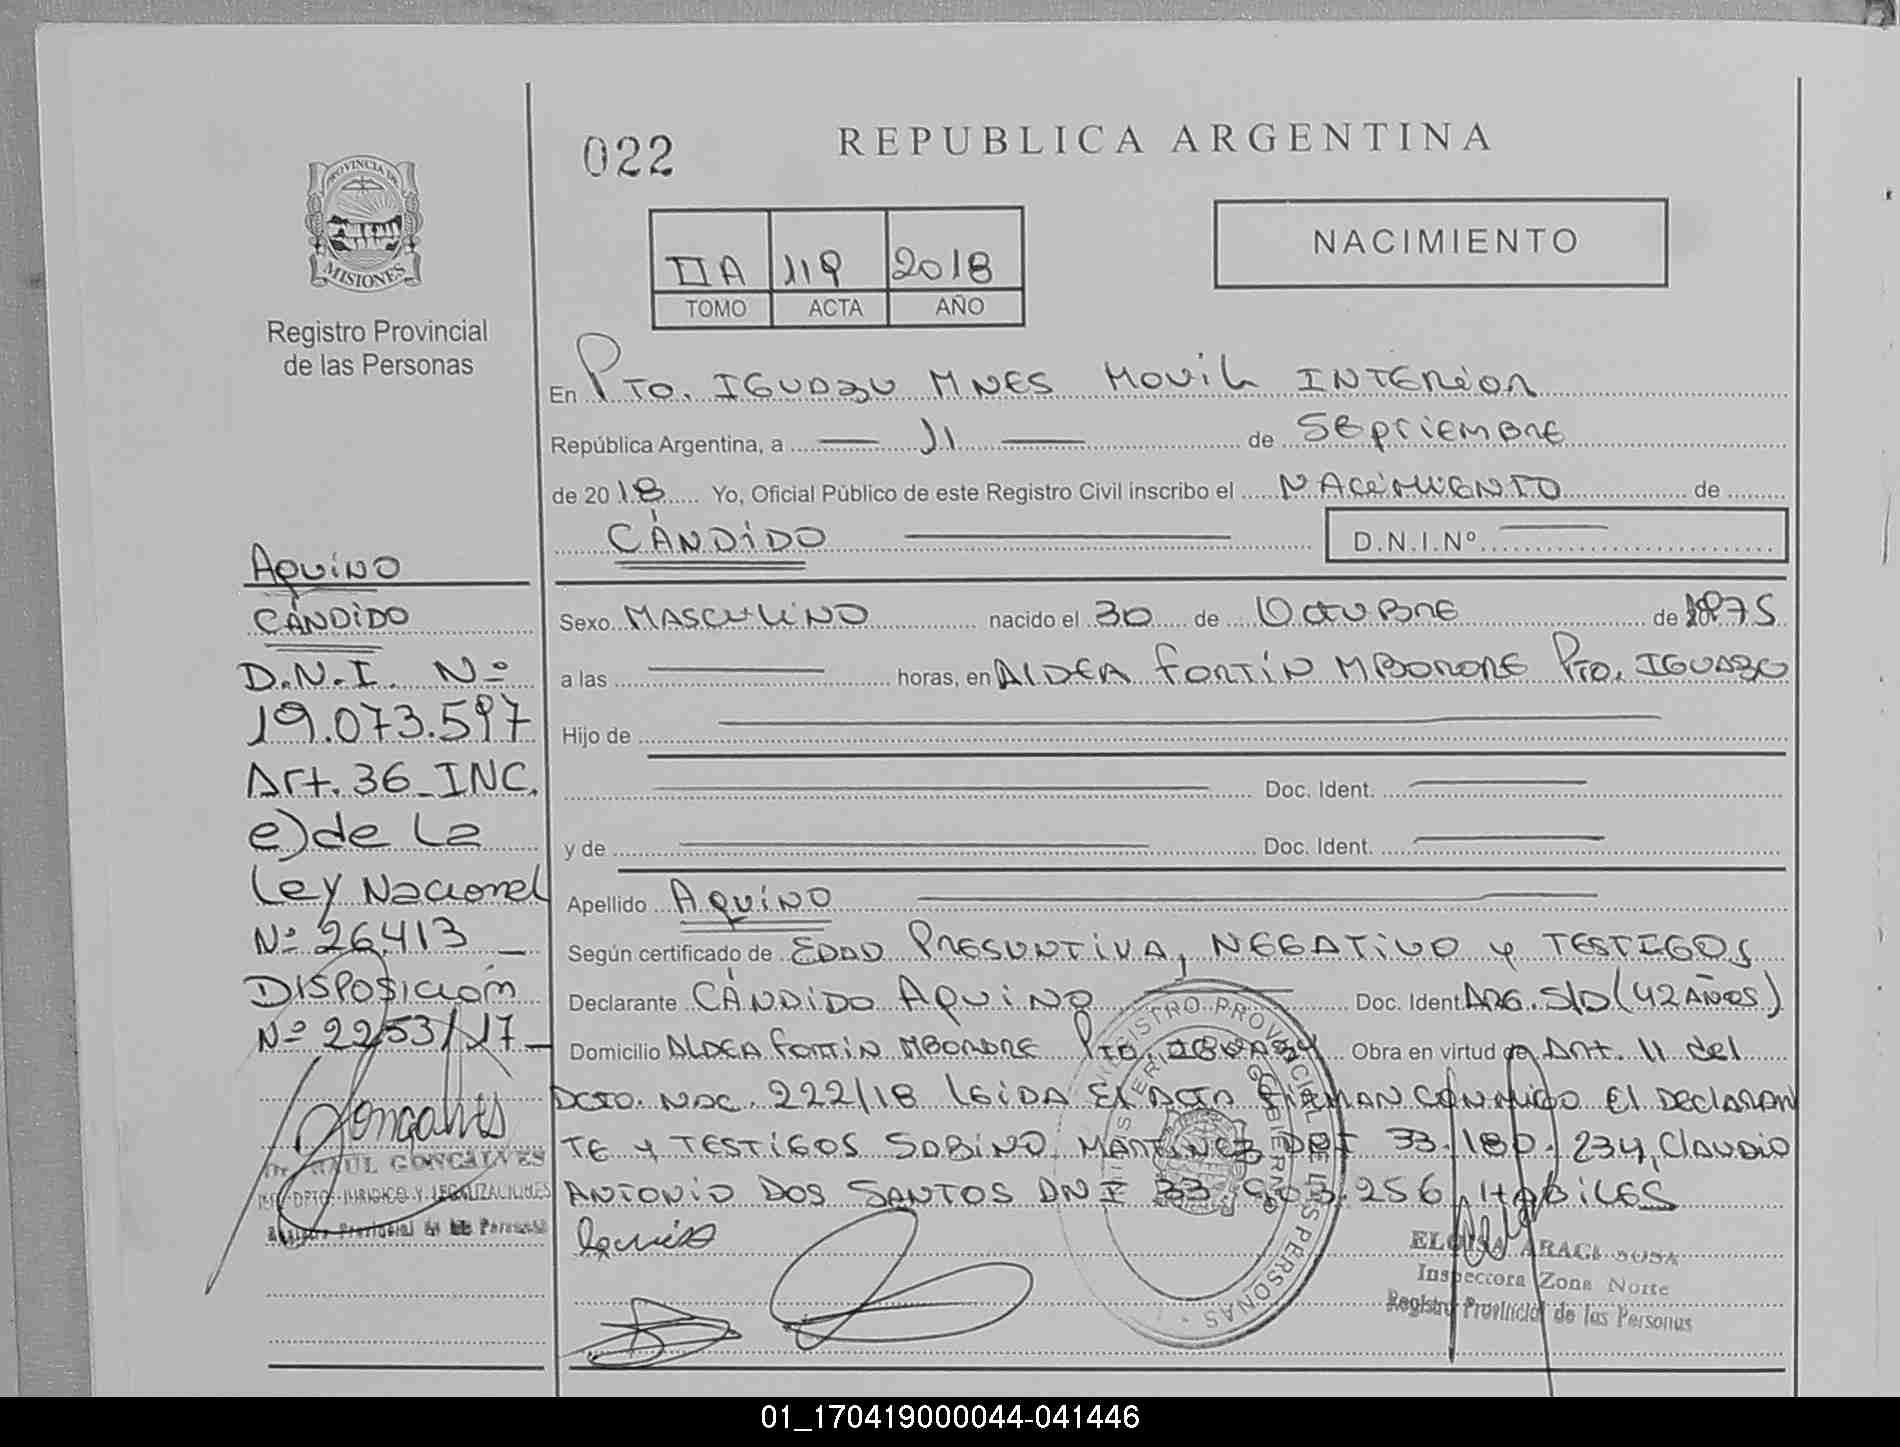 022
REPUBLICA ARGENTINA
PROVINCIA DE
MISIONES
Registro Provincial
de las Personas
IIA 119 2018
TOMO ACTA AÑO
NACIMIENTO
En Pto. IGUAZU MNES MOVIL INTERiOR
República Argentina, a 11 de SEPTIEMBRE
de 2018 Yo, Oficial Público de este Registro Civil inscribo el NACIMIENTO de
CÁNDIDO D.N.I.Nº
Sexo MASCULINO nacido el 30 de OCTUBRE de 1975
a las horas, en ALDEA FORTÍN MBORORE Pto. IGUAZU
Hijo de
Doc. Ident.
y de Doc. Ident.
Apellido AQUINO
Según certificado de EDAD PRESUNTIVA, NEGATIVO y TESTIGOS
Declarante CÁNDIDO AQUINO Doc. Ident. ARG. S/D (42 AÑOS)
Domicilio ALDEA FORTIN MBORORE Pto. IGUAZU Obra en virtud de Art. 11 del
DCTO. NAC. 222/18 LEIDA El ACTA FIRMAN CONMIGO El DECLARAN
TE y TESTIGOS SABINO MARTINEZ DNI 33.180.234, CLAUDIO
ANTONIO DOS SANTOS DNI 33.903.256, HABILES
AQUINO
CÁNDIDO
D.N.I. Nº
19.073.597
Art. 36 INC.
e) de La
Ley Nacional
Nº 26.413
DISPOSICIÓN
Nº 2253/17
Goncalves
Dr. RAUL GONCALVES
DPTO. JURIDICO Y LEGALIZACIONES
Registro Provincial de las Personas
REGISTRO PROVINCIAL DE LAS PERSONAS
ELOISA ARACI SOSA
Inspectora Zona Norte
Registro Provincial de las Personas
01_170419000044-041446